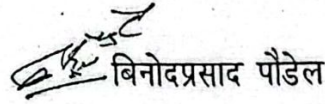 बिनोदप्रसाद पौडेल